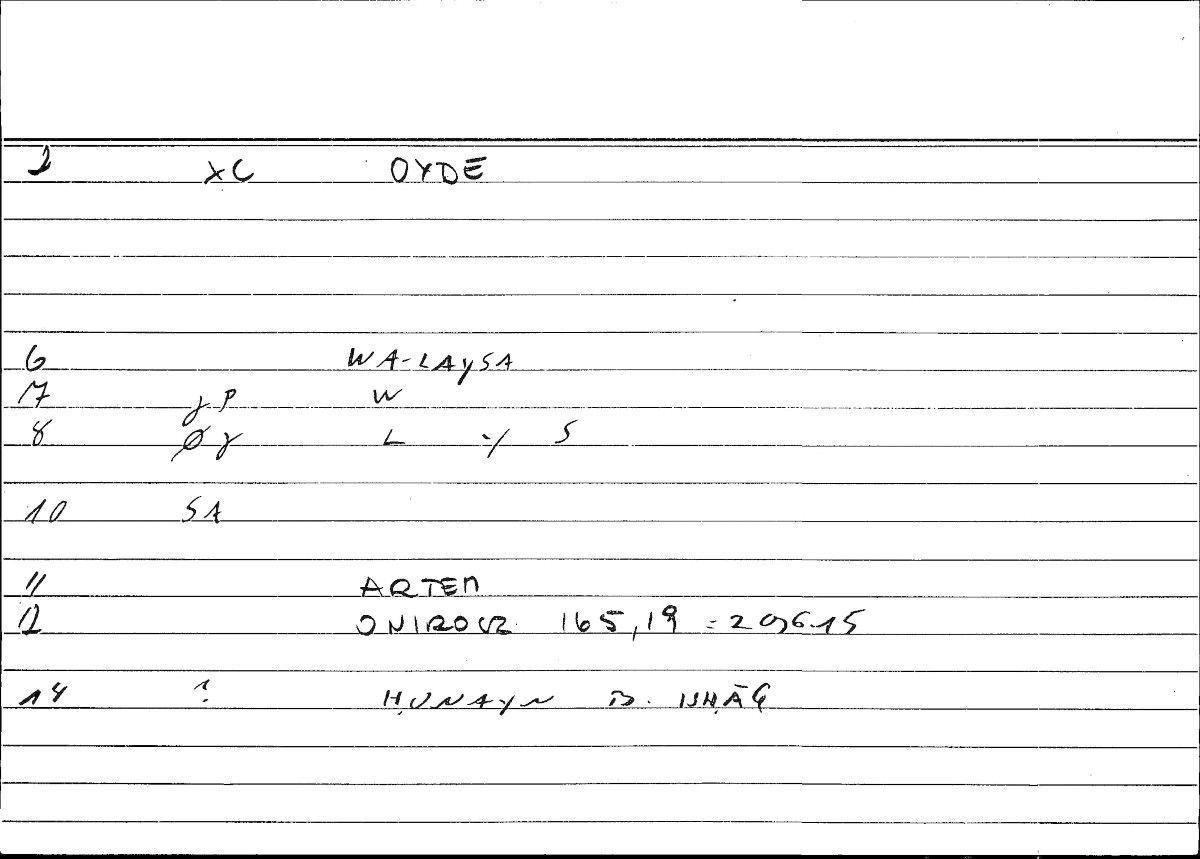 2 XC OYDE
6 WA-LAYSA
7 γP W
8 Øγ L ·/ S
10 SA
11 ARTEM
12 ONIROCR. 165,19 = 296.15
14 ? ḤUNAYN B. ISḤĀQ